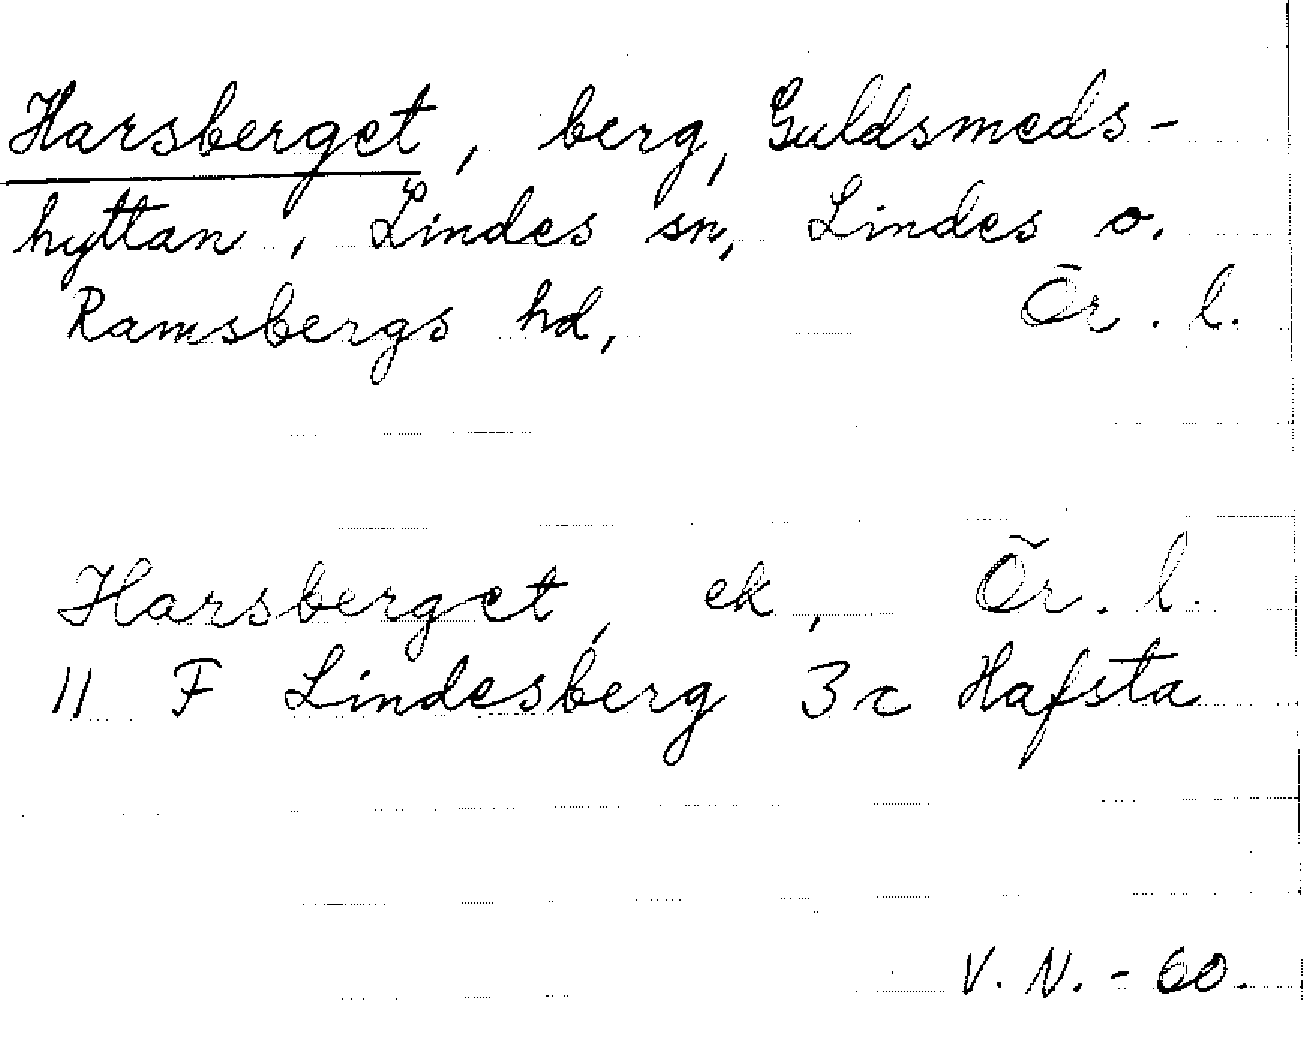 Harsberget, berg, Guldsmeds-
hyttan, Lindes sn, Lindes o.
Ramsbergs hd, Ör. l.
Harsberget, ek, Ör. l.
11 F Lindesberg 3c Hafsta
V. N. - 60.